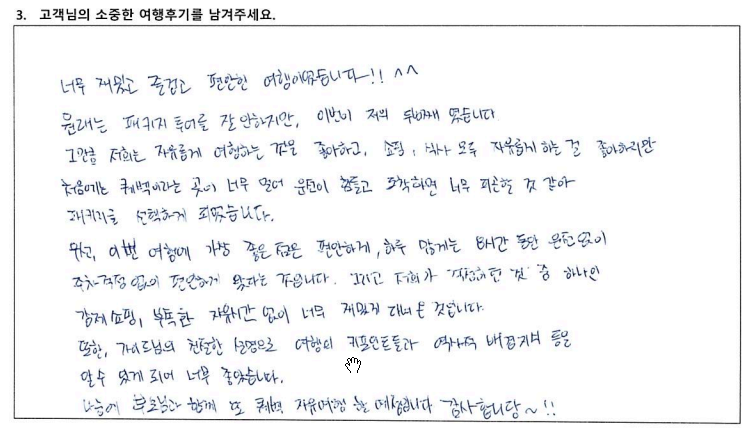 3. 고객님의 소중한 여행후기를 남겨주세요.
너무 재밌고 즐겁고 편안한 여행이었습니다~!! ^^
원래는 패키지 투어를 잘 안하지만, 이번이 저의 두번째 였습니다
그만큼 저희는 자유롭게 여행하는 것을 좋아하고, 쇼핑, 식사 모두 자유롭게 하는 걸 좋아하지만
처음에는 퀘백이라는 곳이 너무 멀어 운전이 힘들고 도착하면 너무 피곤할 것 같아
패키지를 선택하게 되었습니다.
이번 여행에 가장 좋은 점은 편안하게, 하루 많게는 8시간 동안 운전 없이
주차걱정 없이 편안하게 왔다는 것입니다. 그리고 저희가 "걱정하던 것" 중 하나인
강제쇼핑, 부족한 자유시간 없이 너무 재밌게 다녀온 것입니다.
또한, 가이드님의 친절한 설명으로 여행의 키포인트들과 역사적 배경지식 등을
알 수 있게 되어 너무 좋았습니다.
나중에 부모님과 함께 또 퀘백 자유여행 할 예정입니다 감사합니당~!!